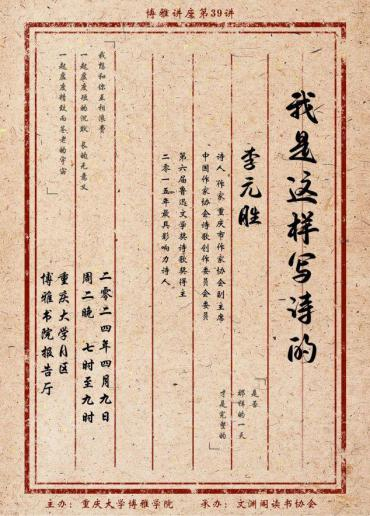 博雅讲座第39讲
我是这样写诗的
是否
那样的一天
才是完整的
李元胜
诗人 作家 重庆市作家协会副主席
中国作家协会诗歌创作委员会委员
第六届鲁迅文学奖诗歌奖得主
二零一五年最具影响力诗人
二零二四年四月九日
周二晚 七时至九时
重庆大学A区
博雅书院报告厅
我想和你互相浪费
一起虚度短的沉默 长的无意义
一起虚度精致而苍老的宇宙
主办:重庆大学博雅学院
承办:文渊阁读书协会